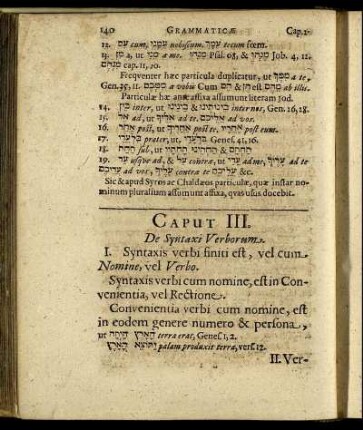 140 GRAMMATICÆ Cap. 2.
12. עִם cum, עִמָּנוּ nobiscum. עִמָּךְ tecum fœm.
13. מִן à, ut מִמֶּנִּי a me. Psal. 65, & Job. 4, 12.
cap. 11, 20.
Freqventer hæc particula duplicatur, ut מִמְּךָ a te,
Gen. 35, 11. מִכֶּם a vobis Cum הֵם est מֵהֶם ab illis.
Particulæ hæ ante affixa assumunt literam Jod.
14. בֵּין inter, ut & inter nos, Gen. 26, 28.
15. אֶל ad, ut אֵלֶיךָ ad te. אֲלֵיכֶם ad vos,
16. אַחַר post, ut אַחֲרֶיךָ post te. post eum.
17. præter, ut Genes. 41, 16.
18. תַּחַת sub, ut &
19. עַד usqve ad, & עַל contra, ut עָדַי ad me, ad te
ad vos, עָלֶיךָ contra te עֲלֵיכֶם &c.
Sic & apud Syros ac Chaldæos particulæ, quæ instar no-
minum pluralium assumunt affixa, qvas usus docebit.
CAPUT III.
De Syntaxi Verborum.
I. Syntaxis verbi finiti est, vel cum
Nomine, vel Verbo.
Syntaxis verbi cum nomine, est in Con-
venientia, vel Rectione.
Convenientia verbi cum nomine, est
in eodem genere numero & persona,
ut הָאָרֶץ הָיְתָה terra erat, Genes. 1, 2.
וַתּוֹצֵא הָאָרֶץ palam produxit terra, vers. 12.
II. Ver-